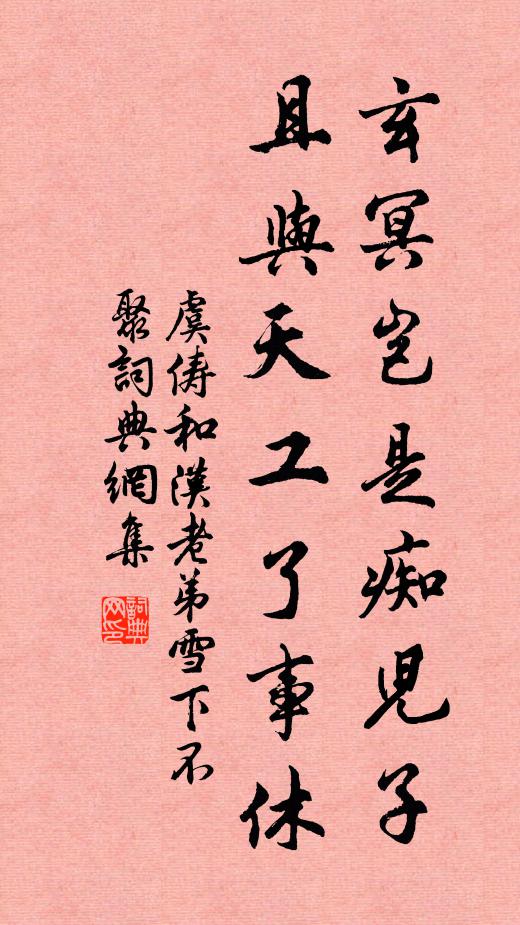 玄冥岂是痴儿子
且與天工了事休
虞儔和漢老弟雪下不
聚詞典網集
詞典网印